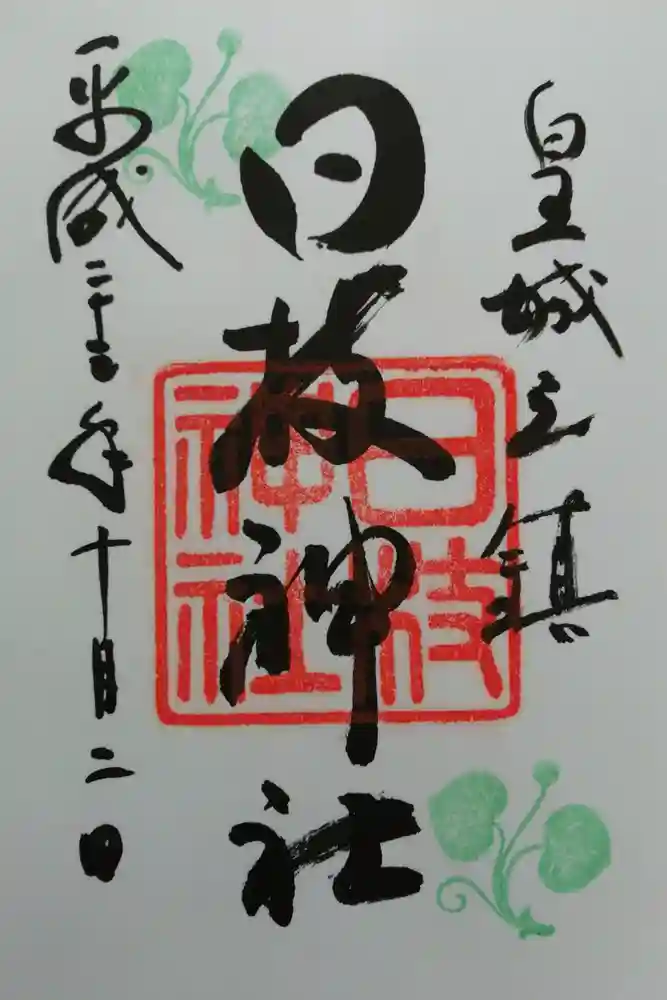 皇城之鎮
日枝神社
平成二十年十月二日
日枝
神社